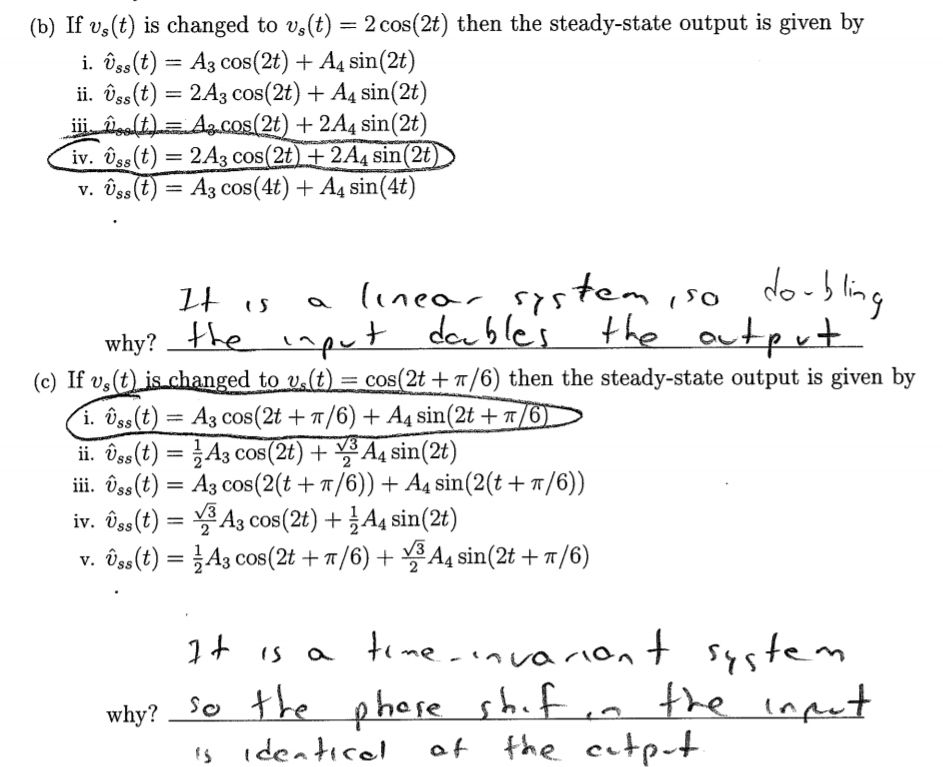 (b) If vₛ(t) is changed to vₛ(t) = 2 cos(2t) then the steady-state output is given by
i. v̂ₛₛ(t) = A₃ cos(2t) + A₄ sin(2t)
ii. v̂ₛₛ(t) = 2A₃ cos(2t) + A₄ sin(2t)
iii. v̂ₛₛ(t) = A₃ cos(2t) + 2A₄ sin(2t)
iv. v̂ₛₛ(t) = 2A₃ cos(2t) + 2A₄ sin(2t)
v. v̂ₛₛ(t) = A₃ cos(4t) + A₄ sin(4t)
It is a linear system, so doubling
why? the input doubles the output
(c) If vₛ(t) is changed to vₛ(t) = cos(2t + π/6) then the steady-state output is given by
i. v̂ₛₛ(t) = A₃ cos(2t + π/6) + A₄ sin(2t + π/6)
ii. v̂ₛₛ(t) = ½A₃ cos(2t) + √3/2 A₄ sin(2t)
iii. v̂ₛₛ(t) = A₃ cos(2(t + π/6)) + A₄ sin(2(t + π/6))
iv. v̂ₛₛ(t) = √3/2 A₃ cos(2t) + ½A₄ sin(2t)
v. v̂ₛₛ(t) = ½A₃ cos(2t + π/6) + √3/2 A₄ sin(2t + π/6)
It is a time-invariant system
why? so the phase shif in the input
is identical at the output